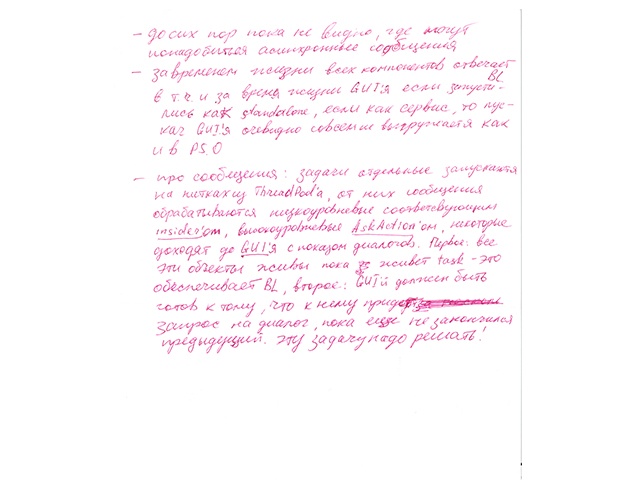 – до сих пор пока не видно, где могут
понадобиться асинхронные сообщения
– за временем жизни всех компонентов отвечает
BL
в т.ч. и за время жизни GUI'я если запусти-
лись как standalone, если как сервис, то пус-
кач GUI'я очевидно совсем выгружается как
и в PS.O
– про сообщения: задачи отдельные запускаются
на нитках из ThreadPool'а, от них сообщения
обрабатываются низкоуровневые соответсвующим
insider'ом, высокоуровневые AskAction'ом, некоторые
доходят до GUI'я с показом диалогов. Первое: все
эти объекты живы пока живет task – это
обеспечивает BL, второе: GUI'й должен быть
готов к тому, что к нему придет
запрос на диалог, пока еще не закончился
предыдущий. Эту задачу надо решать!